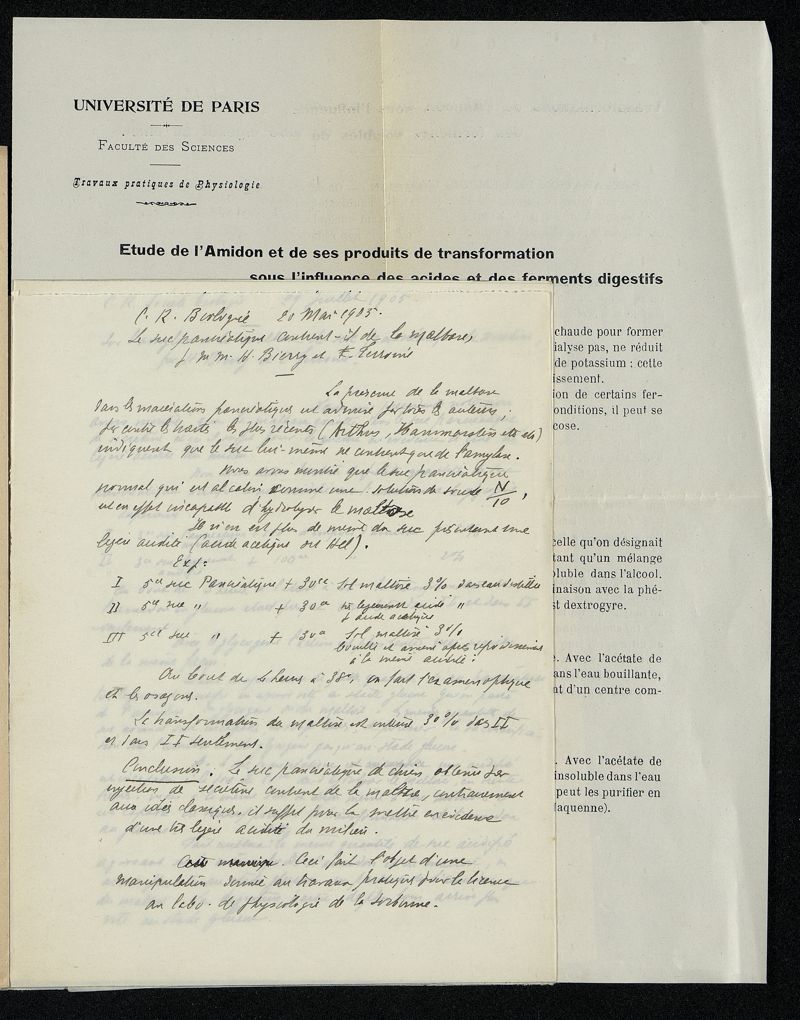 UNIVERSITÉ DE PARIS
FACULTÉ DES SCIENCES
Travaux pratiques de Physiologie
Etude de l'Amidon et de ses produits de transformation
sous l'influence des acides et des ferments digestifs
C. R. Biologie 20 Mai 1905.
Le suc pancréatique contient-il de la maltase,
M. H. Bierry et Terroine
La présence de la maltase
dans les macérations pancréatiques est admise par les auteurs,
par contre les traités les plus récents (Arthus, Hammarsten etc etc)
indiquent que le suc lui-même ne contient que de l'amylase.
Nous avons montré que le suc pancréatique
normal qui est alcalin comme une solution de soude N/10,
est en effet incapable d'hydrolyser le maltose
Il n'en est plus de même du suc présentant une
légère acidité (acide acétique ou HCl).
Exp:
I 5cc suc Pancréatique + 30cc sol maltose 3% dans eau distillée
II 5cc suc " + 30cc très légèrement acide "
d'acide acétique
III 5cc suc " + 30cc sol maltose 3%
bouilli et amené après refroidissement
à la même acidité :
Au bout de heures à 38°, on fait l'examen optique
et les osazones.
La transformation du maltose est 30% dans II
et dans II seulement.
Conclusion. Le suc pancréatique de chien obtenu par
injection de sécrétine contient de la maltase, contrairement
aux idées classiques, il suffit pour la mettre en évidence
d'une très légère acidité du milieu.
Ceci fait l'objet d'une
manipulation donnée aux travaux pratiques pour la licence
au labo. de physiologie de la Sorbonne.
chaude pour former
ialyse pas, ne réduit
de potassium ; cette
issement.
ion de certains fer-
onditions, il peut se
cose.
celle qu'on désignait
tant qu'un mélange
oluble dans l'alcool.
inaison avec la phé-
st dextrogyre.
. Avec l'acétate de
ans l'eau bouillante,
at d'un centre com-
. Avec l'acétate de
insoluble dans l'eau
peut les purifier en
Jaquenne).